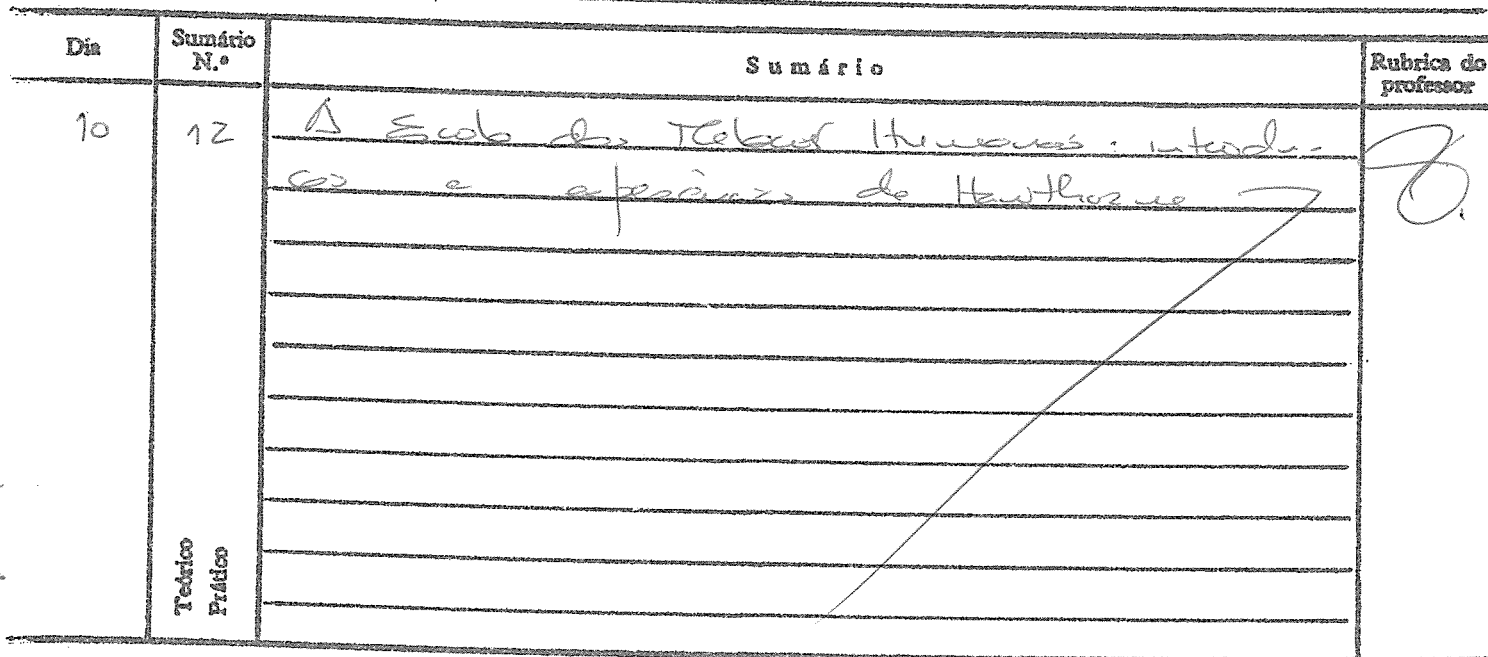 Dia
Sumário N.º
Sumário
Rubrica do professor
10
12
A Escola das Relações Humanas: introdu-
ção e experiência de Hawthorne
Teórico
Prático